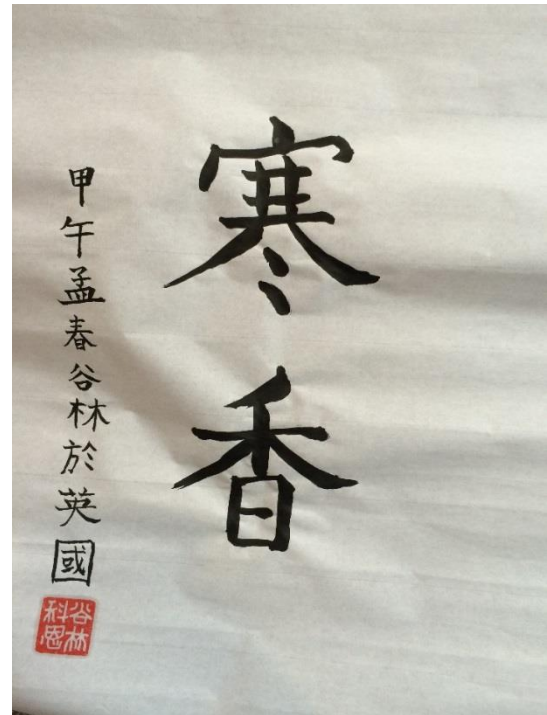 寒香
甲午孟春谷林於英國
谷林
科恩